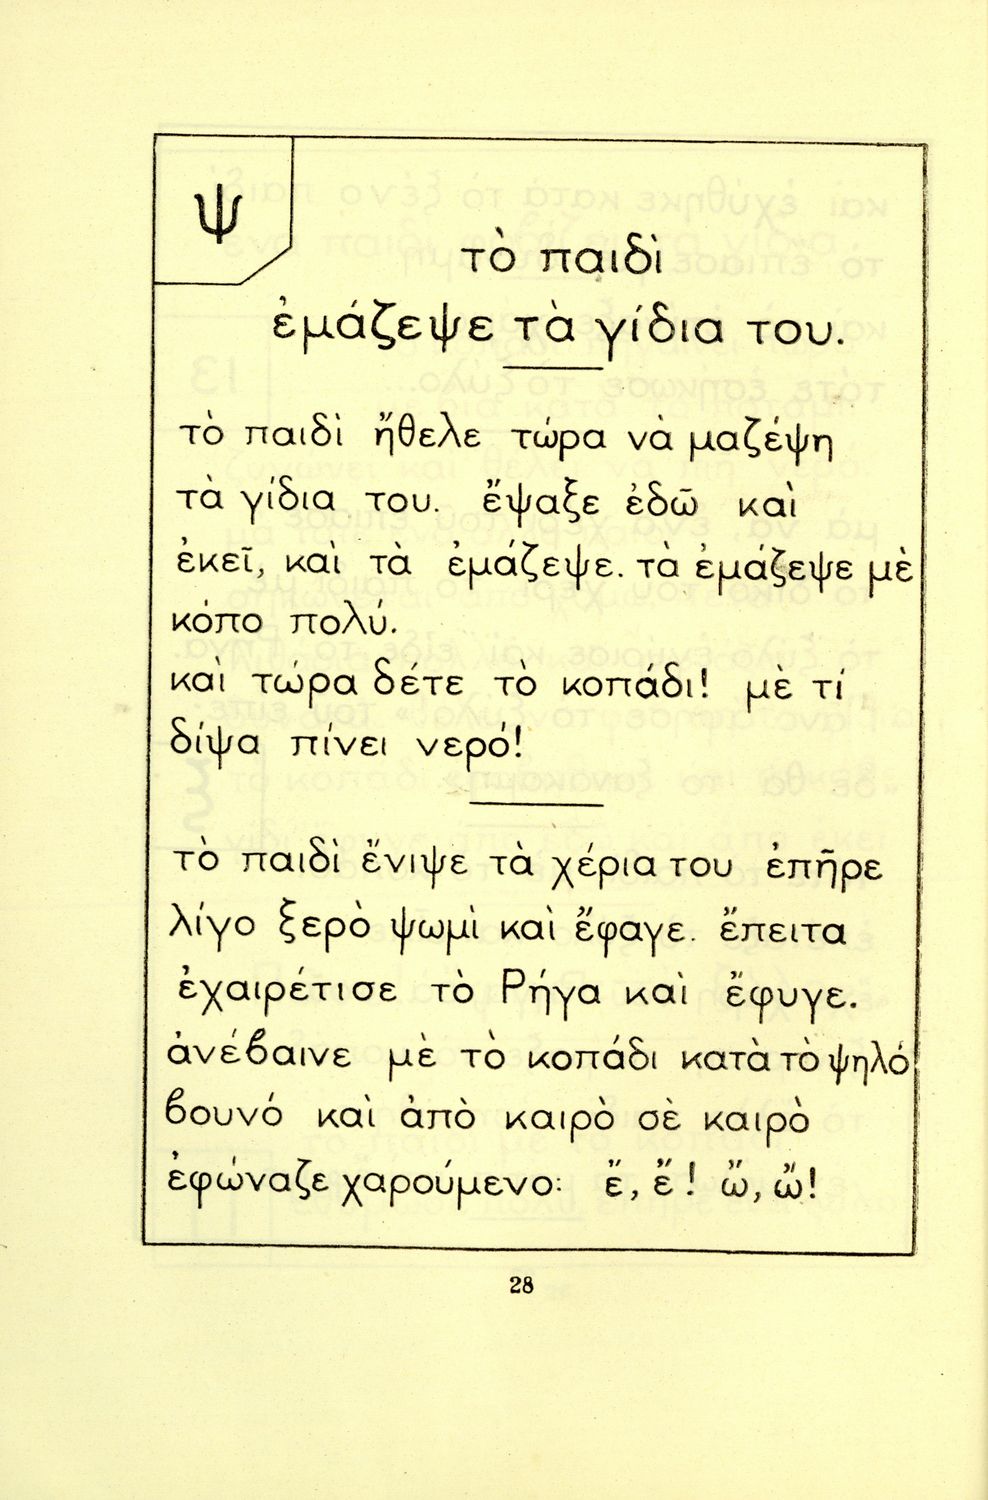 ψ
τὸ παιδὶ
ἐμάζεψε τὰ γίδια του.
τὸ παιδὶ ἤθελε τώρα νὰ μαζέψη
τὰ γίδια του. ἔψαξε ἐδῶ καὶ
ἐκεῖ, καὶ τὰ ἐμάζεψε. τὰ ἐμάζεψε μὲ
κόπο πολύ.
καὶ τώρα δέτε τὸ κοπάδι! μὲ τί
δίψα πίνει νερό!
τὸ παιδὶ ἔνιψε τὰ χέρια του ἐπῆρε
λίγο ξερὸ ψωμὶ καὶ ἔφαγε. ἔπειτα
ἐχαιρέτισε τὸ Ρήγα καὶ ἔφυγε.
ἀνέβαινε μὲ τὸ κοπάδι κατὰ τὸ ψηλό
βουνό καὶ ἀπὸ καιρὸ σὲ καιρὸ
ἐφώναζε χαρούμενο: ἔ, ἔ! ὤ, ὤ!
28